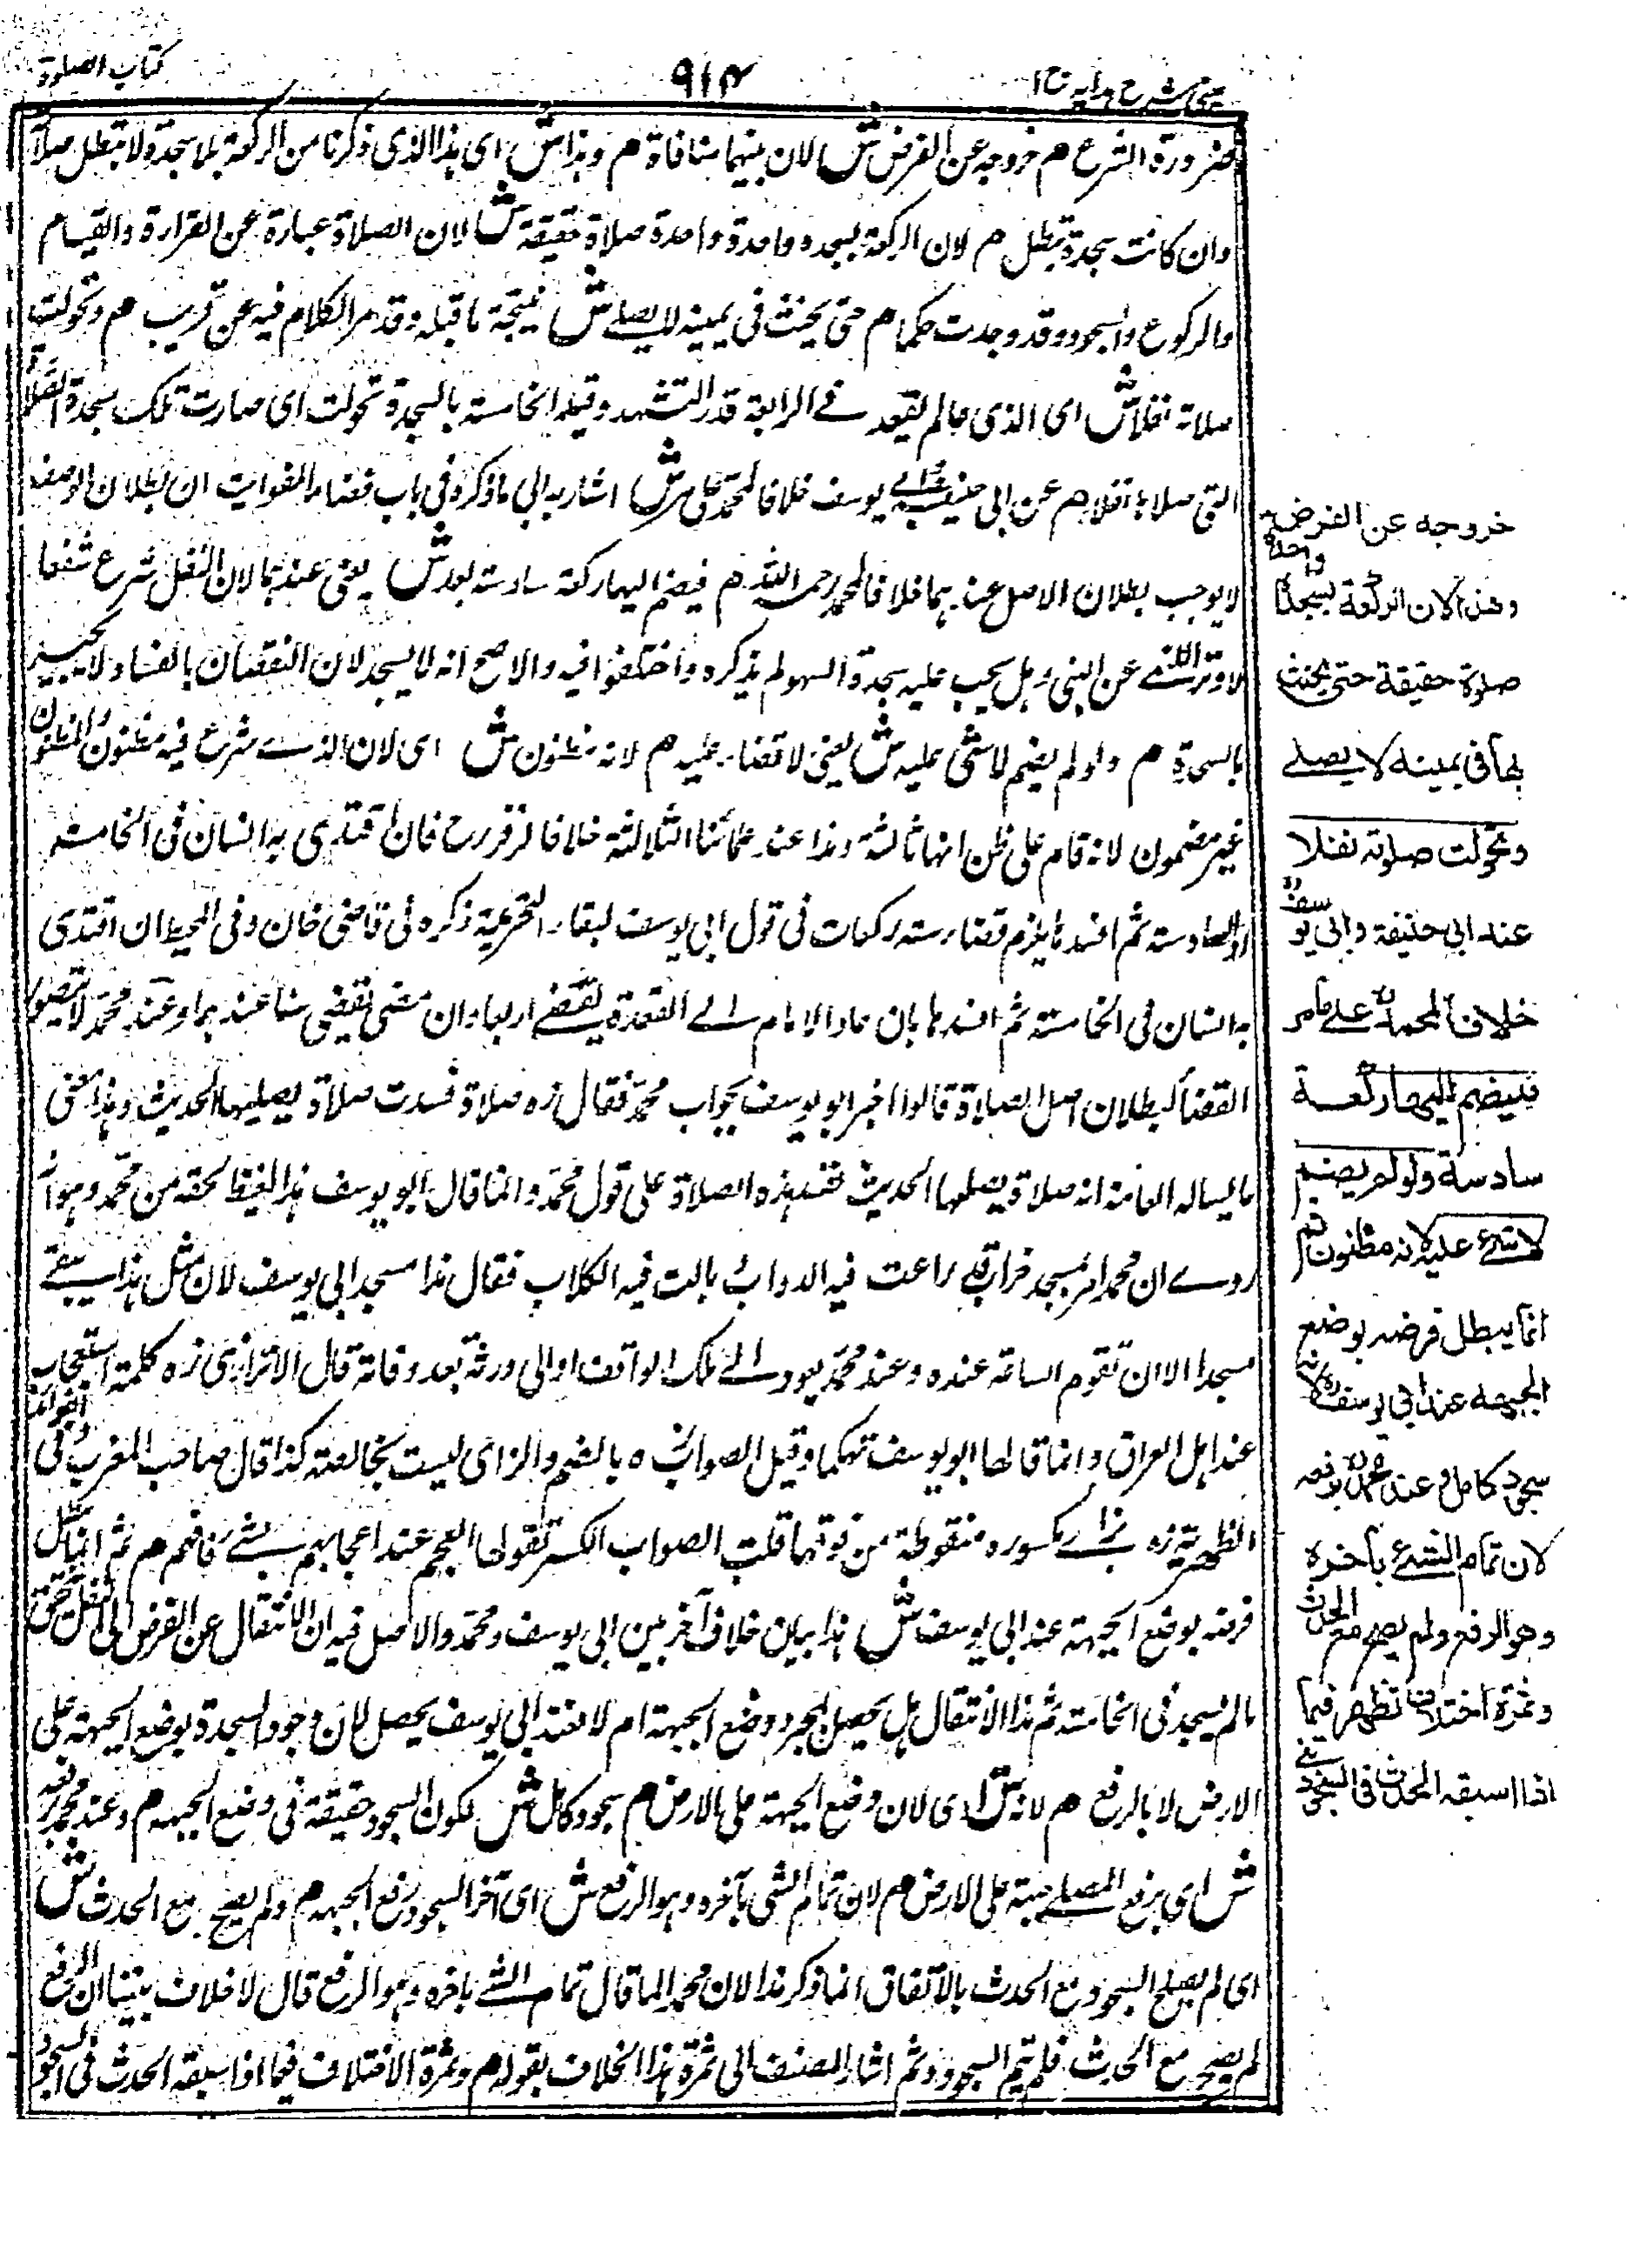 عینی شرح ہدایہ ج ۱
۹۱۴
کتاب الصلوة
ضرورة الشرع م خروجه عن الفرض ش لان بینهما منافاة م وهذا ش ای هذا الذی ذکرنا من الرکعة بلا سجدة لا تبطل صلاة
وان کانت سجدة تبطل م لان الرکعة بسجدة واحدة صلاة حقیقة ش لان الصلاة عبارة عن القراءة والقیام
والرکوع والسجود وقد وجدت حکما م حتی یحنث فی یمینه لا یصلے ش نتیجة ما قبله وقد مر الکلام فیه عن قریب م وتحولت
صلاته نفلا ش ای الذی مالم یقعد فے الرابعة قدر التشهد وقید الخامسة بالسجدة تحولت ای صارت تلک بسجدة
التی صلاها نفلا م عن ابی حنیفة وابے یوسف خلافا لمحمد علی ما مر ش اشار به الی ما ذکره فی باب قضاء الفوایت ان بطلان الوصف
لا یوجب بطلان الاصل عندهما خلافا لمحمد رحمه الله م فیضم الیها رکعة سادسة بعد ش یعنی عندهما لان النفل شرع شفعا
لا وترا للنهے عن البتی وهل یجب علیه سجدة السهو لم یذکره واختلفوا فیه والاصح انه لا یسجد لان النقصان بالفساد لا یجبر
بالسجدة م ولو لم یضم لا شی علیه ش یعنی لا قضاء علیه م لانه مظنون ش ای لان الذے شرع فیه مظنون والمظنون
غیر مضمون لانه قام علی ظن انها ثالثة وهذا عند علمائنا الثلاثة خلافا لزفر رح فان اقتدی به انسان فی الخامسة
او السادسة ثم افسدها یلزم قضاء ستة رکعات فی قول ابی یوسف لبقاء التحریمة ذکره فی قاضی خان وفی المحیط ان اقتدی
به انسان فی الخامسة ثم افسدها بان عاد الامام الے القعدة یقضے اربعا وان مضی یقضی ستا عندهما وعند محمد لا یتصور
القضاء لبطلان اصل الصلاة قالوا اخبر ابو یوسف بجواب محمد فقال زه صلاة فسدت صلاة یصلیها الحدیث وهذا معنی
ما یساله العامة انه صلاة یصلحها الحدیث تفسد هذه الصلاة علی قول محمد وانما قال ابو یوسف هذا لغیظ لحقه من محمد وهو انه
روے ان محمدا مر بمسجد خراب قد راعت فیه الدواب بالت فیه الکلاب فقال هذا مسجد ابی یوسف لان مثل هذا یبقے
مسجدا الا ان تقوم الساعة عنده وعند محمد یعود الے ملک الواقف او الی ورثة بعد وفاته قال الاترازی زه کلمة استعجاب
عند اهل العراق وانما قالها ابو یوسف تهکما وقیل الصواب ه بالضم والزای لیست بخالصة کذا قال صاحب المغرب وفی الفوائد
الظهیریة زه بزاے مکسورة منقوطة من فوقها قلت الصواب الکسر تقولها العجم عند اعجابهم بشئ فافهم م ثم انما یبطل
فرضه بوضع الجبهة عند ابی یوسف ش هذا بیان خلاف آخر بین ابی یوسف ومحمد والاصل فیه ان الانتقال عن الفرض الی النفل لا یتحقق
مالم یسجد فی الخامسة ثم هذا الانتقال هل یحصل بمجرد وضع الجبهة ام لا فعند ابی یوسف یحصل لان وجود السجدة بوضع الجبهة علی
الارض لا بالرفع م لانه ش ای لان وضع الجبهة علی الارض م سجود کامل ش لکون السجود حقیقة فی وضع الجبهه م وعند محمد برفعه
ش ای برفع المصلے جبهته علی الارض م لان تمام الشی بآخره وهو الرفع ش ای آخر السجود رفع الجبهه م ولم یصح مع الحدث ش
ای لم یصح السجود مع الحدث بالاتفاق انما ذکر هذا لان محمدا لما قال تمام الشے باخره وهو الرفع قال لا خلاف بیننا ان الرفع
لم یصح مع الحدث فلم یتم السجود وثم اشار المصنف الی ثمرة هذا الخلاف بقوله م وثمرة الاختلاف فیما اذا سبقه الحدث فی السجود
خروجه عن الفرض
وهذا لان الرکعة بسجدة واحدة
صلوة حقیقة حتی یحنث
بها فی یمینه لا یصلے
وتحولت صلوته نفلا
عند ابی حنیفة وابی یوسف
خلافا لمحمد علے مامر
فیضم الیها رکعة
سادسة ولو لم یضم
لا شئ علیه لانه مظنون ثم
انما یبطل فرضه بوضع
الجبهة عند ابی یوسف لانه
سجود کامل وعند محمد برفعه
لان تمام الشئ بآخره
وهو الرفع ولم یصح مع الحدث
وثمرة اختلاف تظهر فیما
اذا سبقه الحدث فی السجود